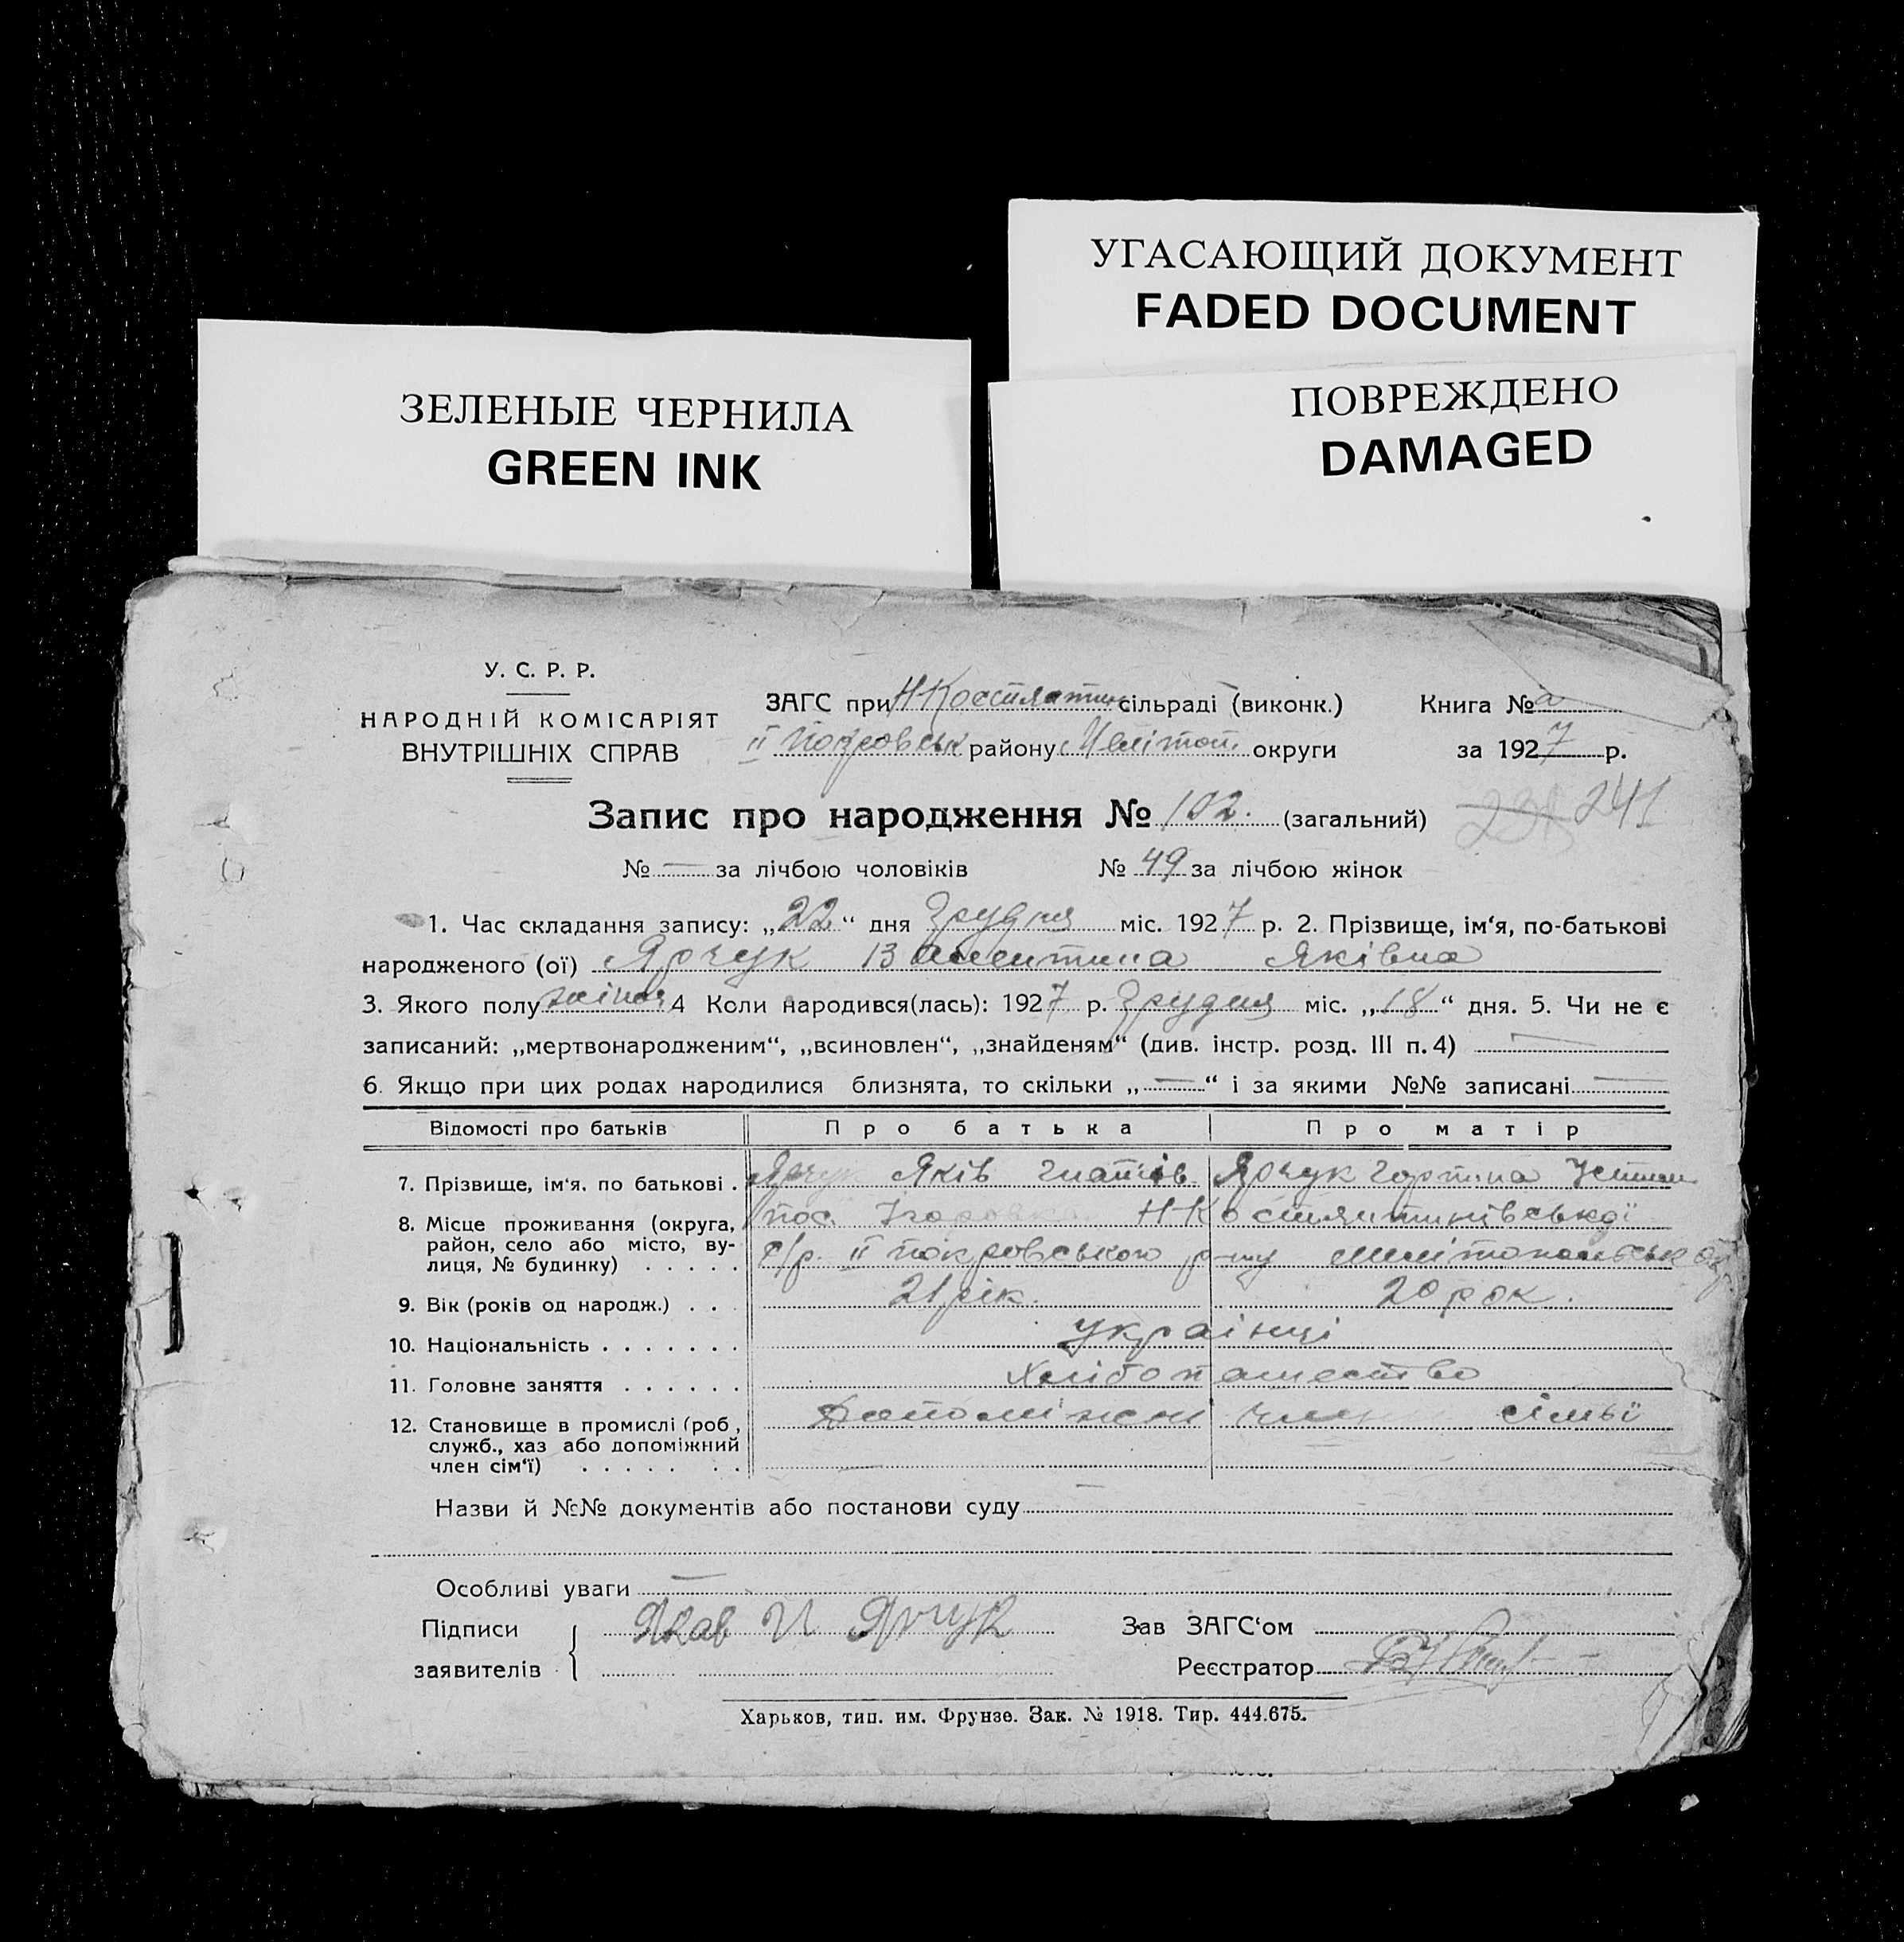 УГАСАЮЩИЙ ДОКУМЕНТ
FADED DOCUMENT
ПОВРЕЖДЕНО
DAMAGED
ЗЕЛЕНЫЕ ЧЕРНИЛА
GREEN INK
У. С. Р. Р.
НАРОДНІЙ КОМІСАРІЯТ
ВНУТРІШНІХ СПРАВ
ЗАГС при Н Костянтин сільраді (виконк.)
II Покровськ району Мелітоп. округи
Книга №
за 1927 р.
Запис про народження № 102. (загальний) 241
№ — за лічбою чоловіків № 49 за лічбою жінок
1. Час складання запису: „22“ дня Грудня міс. 1927 р. 2. Прізвище, ім‘я, по-батькові
народженого (ої) Ярчук Валентина Яківна
3. Якого полу жіноч 4 Коли народився(лась): 1927 р. Грудня міс. „18“ дня. 5. Чи не є
записаний: „мертвонародженим“, „всиновлен“, „знайденям“ (див. інстр. розд. III п. 4) —
6. Якщо при цих родах народилися близнята, то скільки „—“ і за якими №№ записані —
Відомості про батьків Про батька Про матір
7. Прізвище, ім‘я, по батькові . Ярчук Яків Гнатів Ярчук Горпина Устим
8. Місце проживання (округа, район, село або місто, вулиця, № будинку) . . . . . пос. Н Костянтинівської
с/р. II Покровського р-ну Мелітопольськ окр
9. Вік (років од народж.) . . . 21 рік. 20 рок.
10. Національність . . . . . . . українці
11. Головне заняття . . . . . . Хлібопашество
12. Становище в промислі (роб, Допоміжні член сімьї
служб., хаз або допоміжний
член сім‘ї) . . . . . . .
Назви й №№ документів або постанови суду —
Особливі уваги —
Підписи Яков И Ярчук Зав ЗАГС‘ом
заявителів Реєстратор
Харьков, тип. им. Фрунзе. Зак. № 1918. Тир. 444.675.